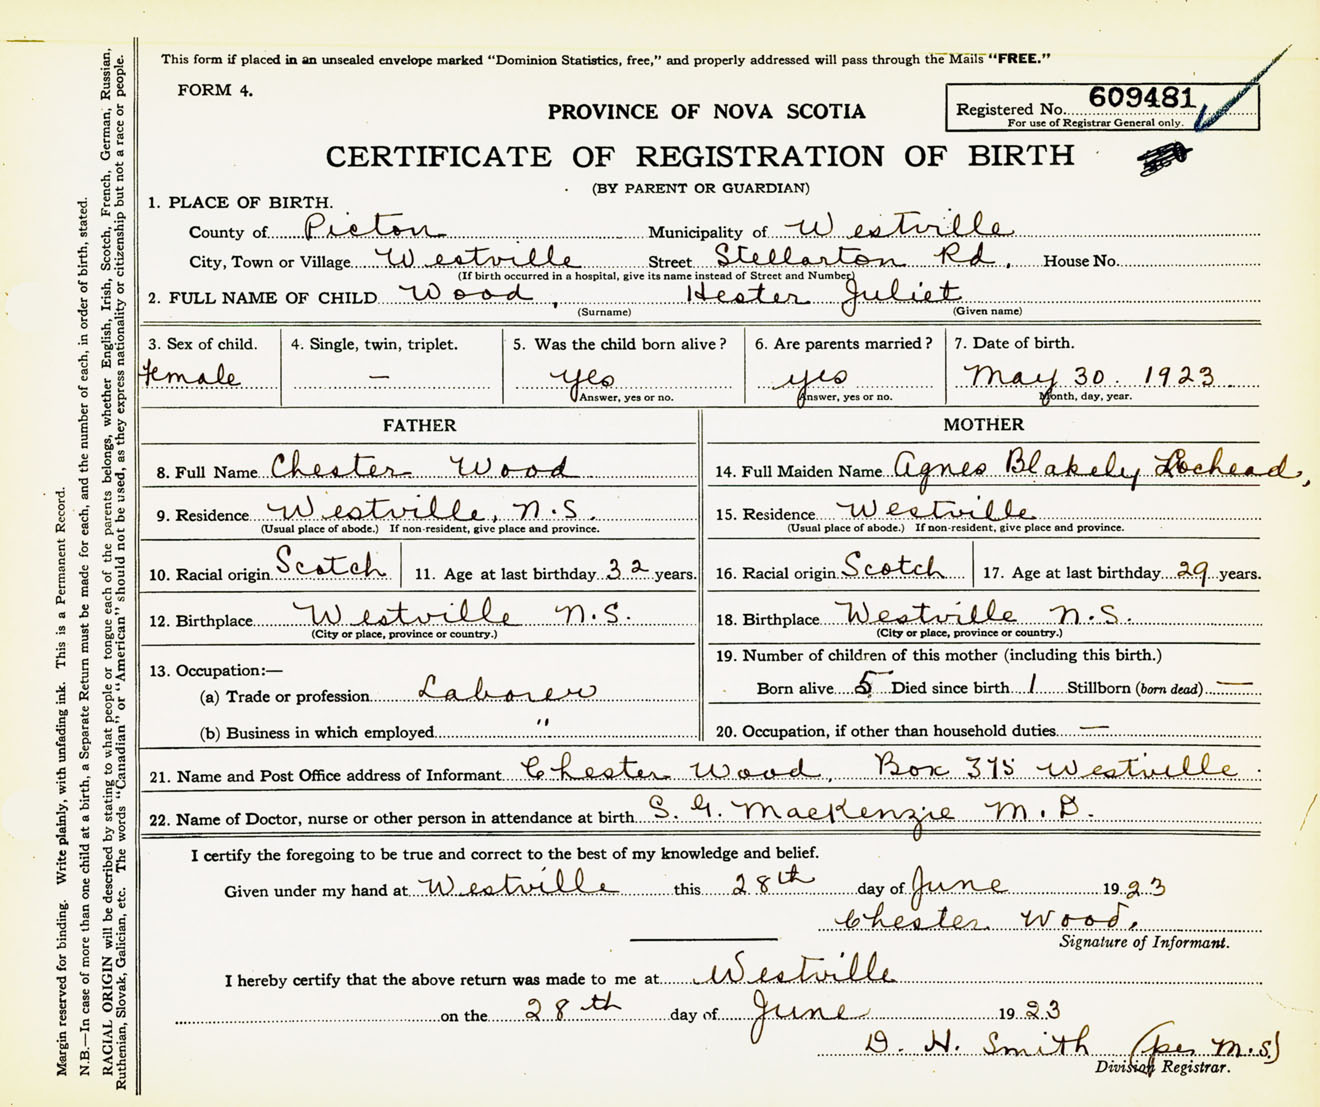 This form if placed in an unsealed envelope marked "Dominion Statistics, free," and properly addressed will pass through the Mails "FREE."
FORM 4.
Registered No. 609481
For use of Registrar General only.
PROVINCE OF NOVA SCOTIA
CERTIFICATE OF REGISTRATION OF BIRTH
(BY PARENT OR GUARDIAN)
1. PLACE OF BIRTH.
County of Picton Municipality of Westville
City, Town or Village Westville Street Stellarton Rd. House No.
(If birth occurred in a hospital, give its name instead of Street and Number)
2. FULL NAME OF CHILD Wood, Hester Juliet
(Surname) (Given name)
3. Sex of child. 4. Single, twin, triplet. 5. Was the child born alive? 6. Are parents married? 7. Date of birth.
Female — yes yes May 30. 1923
Answer, yes or no. Answer, yes or no. Month, day, year.
FATHER
8. Full Name Chester Wood
9. Residence Westville, N.S.
(Usual place of abode.) If non-resident, give place and province.
10. Racial origin Scotch 11. Age at last birthday 32 years.
12. Birthplace Westville N.S.
(City or place, province or country.)
13. Occupation:—
(a) Trade or profession Laborer
(b) Business in which employed "
MOTHER
14. Full Maiden Name Agnes Blakely Lochead,
15. Residence Westville
(Usual place of abode.) If non-resident, give place and province.
16. Racial origin Scotch 17. Age at last birthday 29 years.
18. Birthplace Westville N.S.
(City or place, province or country.)
19. Number of children of this mother (including this birth.)
Born alive 5 Died since birth 1 Stillborn (born dead) —
20. Occupation, if other than household duties. —
21. Name and Post Office address of Informant Chester Wood, Box 375 Westville
22. Name of Doctor, nurse or other person in attendance at birth S. G. MacKenzie M.D.
I certify the foregoing to be true and correct to the best of my knowledge and belief.
Given under my hand at Westville this 28th day of June 1923
Chester Wood.
Signature of Informant.
I hereby certify that the above return was made to me at Westville
on the 28th day of June 1923
D. H. Smith (per M.S)
Division Registrar.
Margin reserved for binding. Write plainly, with unfading ink. This is a Permanent Record.
N.B.—In case of more than one child at a birth, a Separate Return must be made for each, and the number of each, in order of birth, stated.
RACIAL ORIGIN will be described by stating to what people or tongue each of the parents belongs, whether English, Irish, Scotch, French, German, Russian,
Ruthenian, Slovak, Galician, etc. The words "Canadian" or "American" should not be used, as they express nationality or citizenship but not a race or people.